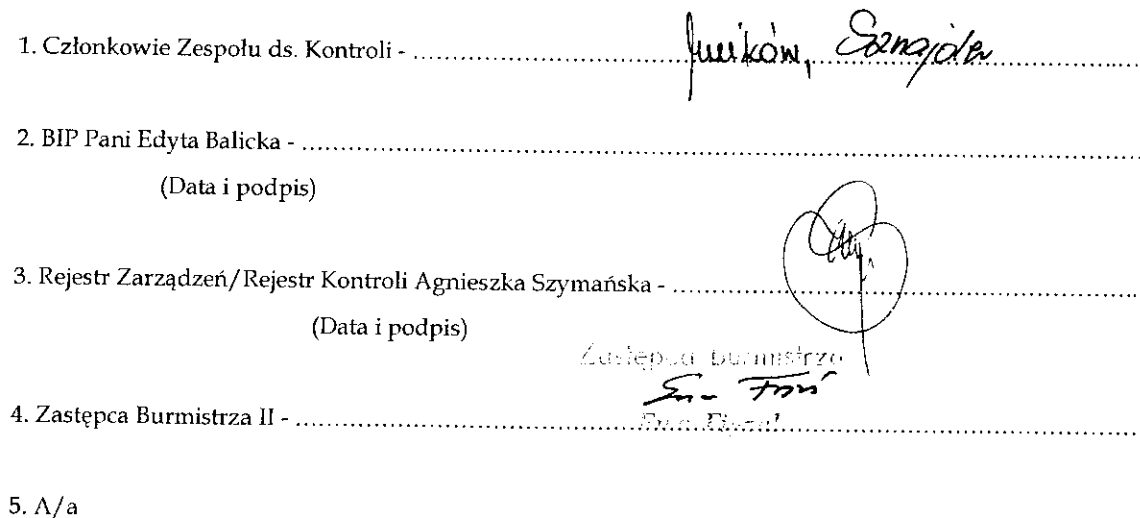 1. Członkowie Zespołu ds. Kontroli - ........................................ Sznajder
2. BIP Pani Edyta Balicka - ........................................
(Data i podpis)
3. Rejestr Zarządzeń/Rejestr Kontroli Agnieszka Szymańska - ........................................
(Data i podpis)
Zastępca Burmistrza
4. Zastępca Burmistrza II - ........................................
5. A/a